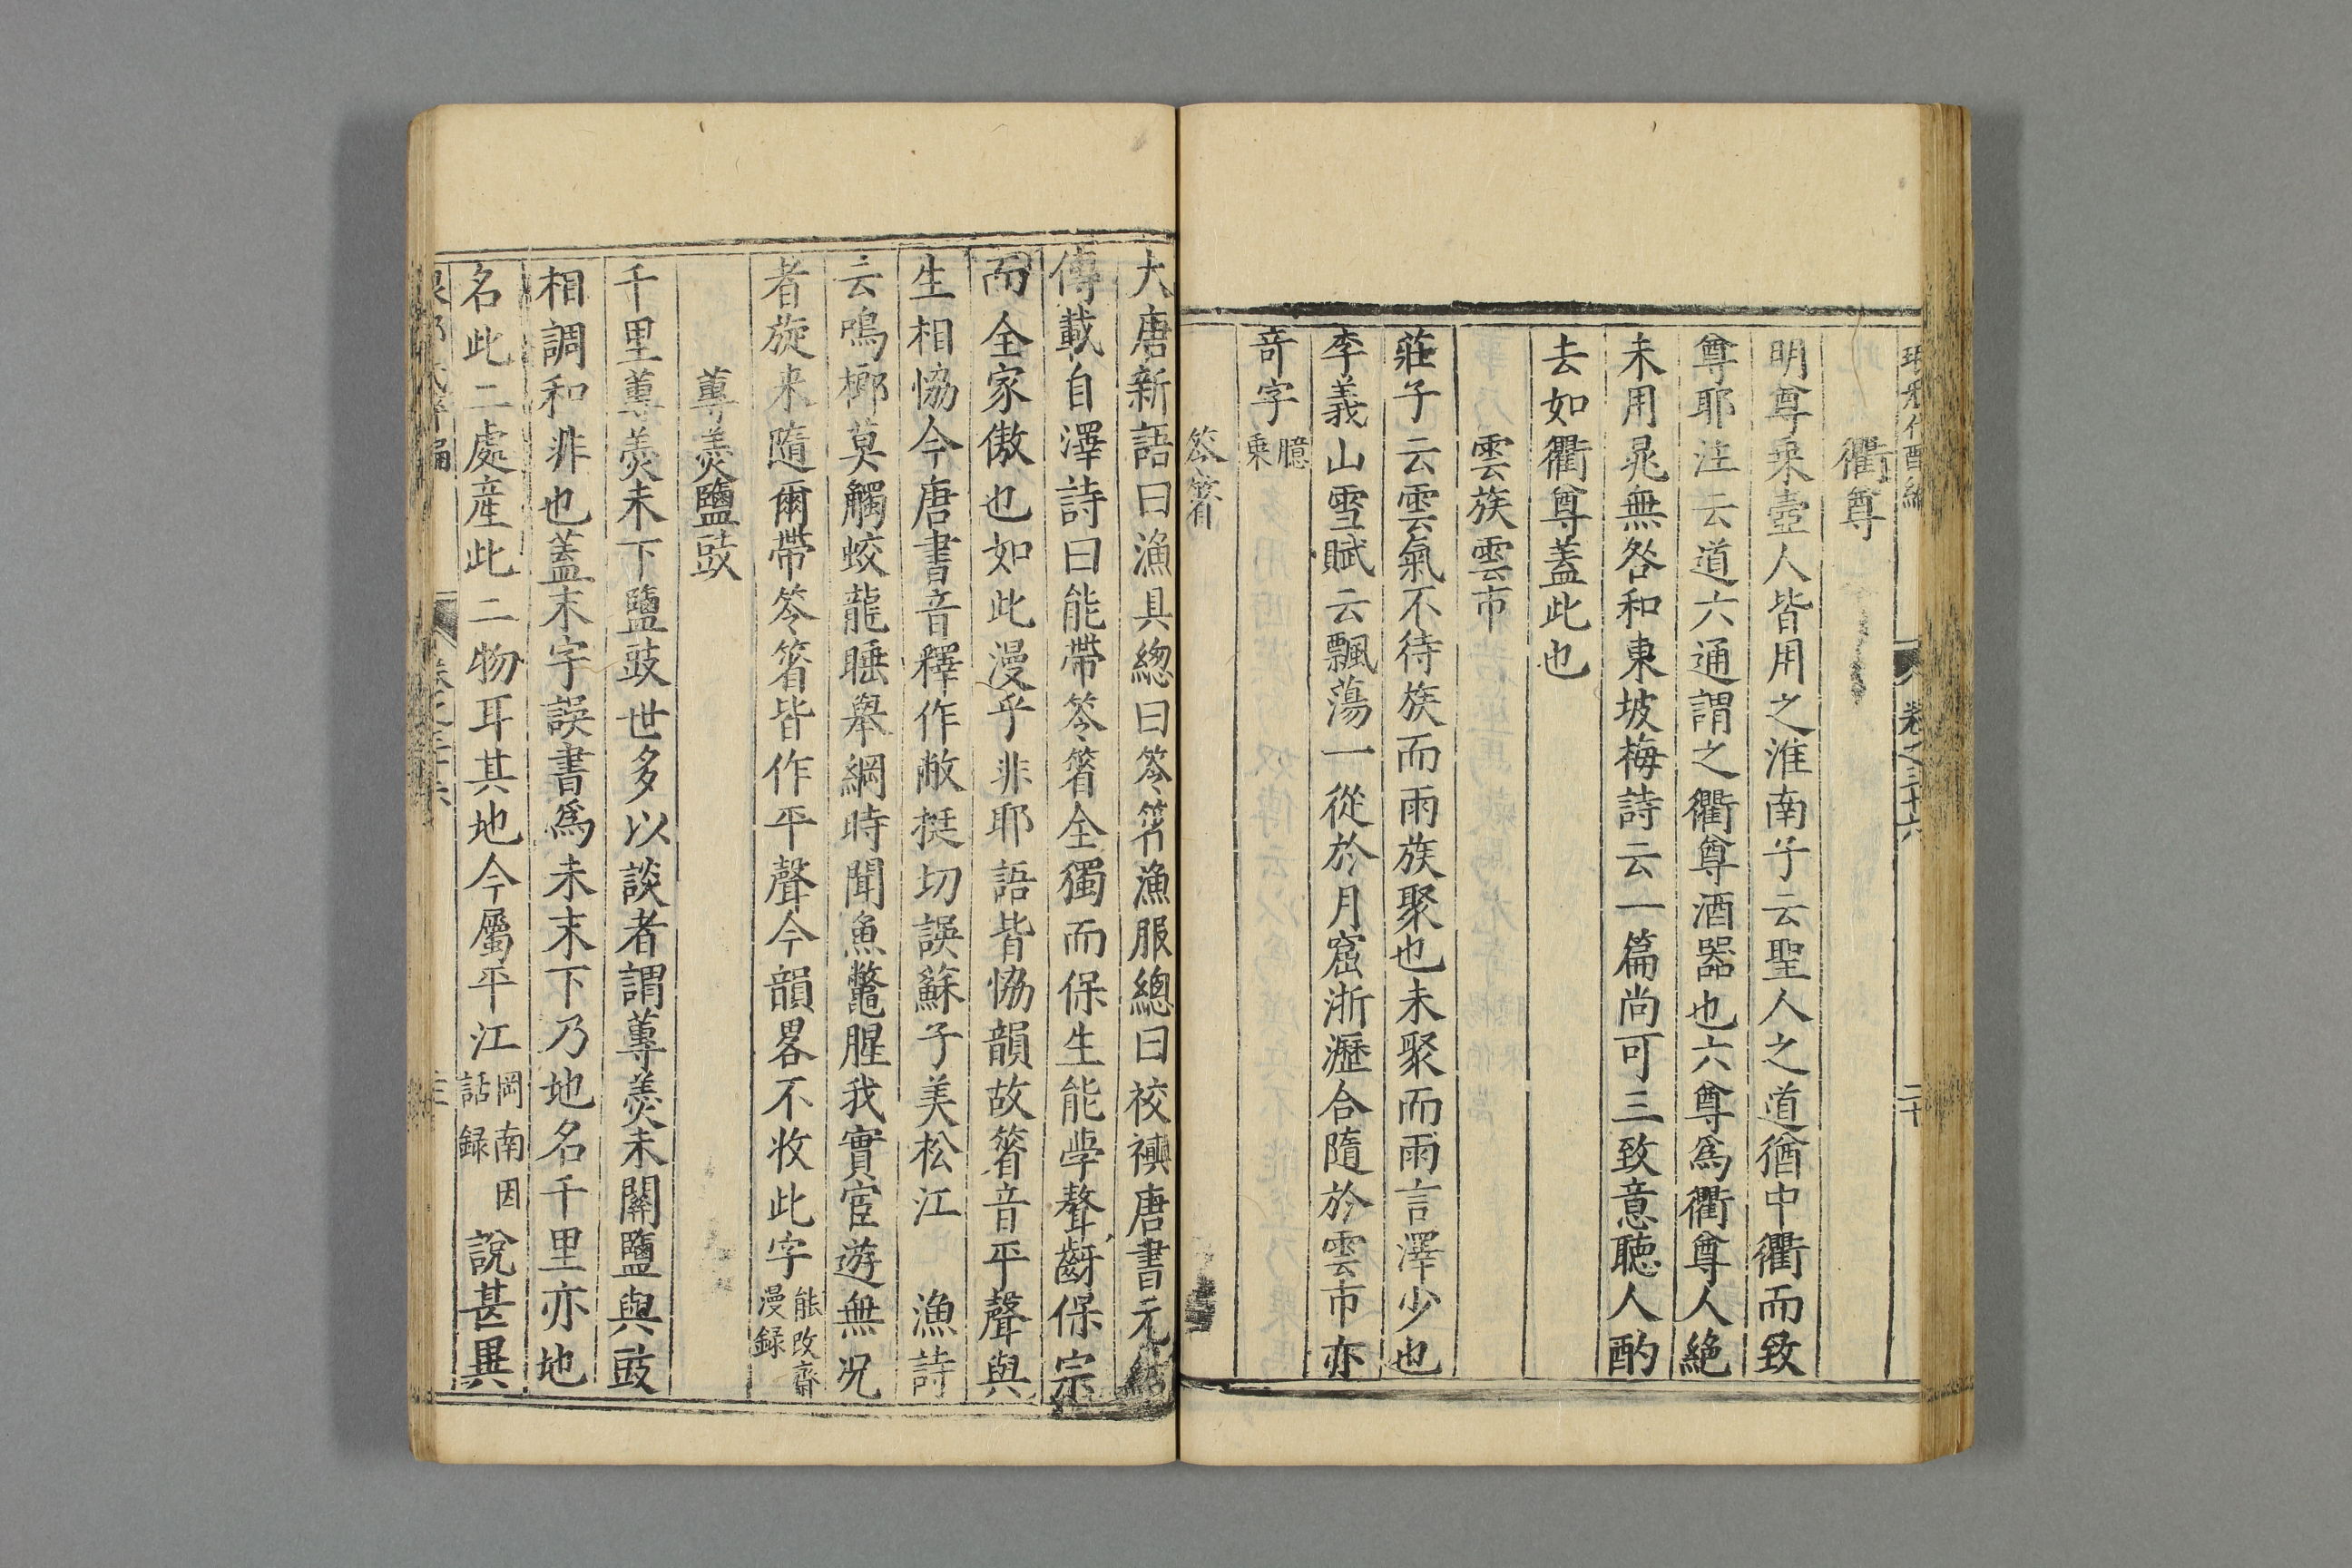 卷之三十六 二十
衢尊
明尊乗壺人皆用之淮南子云聖人之道猶中衢而致
尊耶注云道六通謂之衢尊酒器也六尊爲衢尊人絶
未用晁無咎和東坡梅詩云一篇尚可三致意聽人酌
去如衢尊蓋此也
雲族雲市
莊子云雲氣不待族而雨族聚也未聚而雨言澤少也
李義山雪賦云飄蕩一從於月窟浙瀝合隨於雲市亦
竒字 臆乗
笭箵
大唐新語曰漁具總曰笭箵漁服總曰襏襫唐書元結
傳載自澤詩曰能帶笭箵全獨而保生能學聱齖保宗
而全家傲也如此漫乎非耶語皆恊韻故箵音平聲與
生相恊今唐書音釋作敝挺切誤蘇子美松江漁詩
云鳴榔莫觸蛟龍睡舉網時聞魚鼈腥我實宦遊無况
者旋来隨爾帶笭箵皆作平聲今韻畧不收此字 能改齋漫録
蓴羮鹽豉
千里蓴羮未下鹽豉世多以談者謂蓴羮未關鹽與豉
相調和非也蓋末字誤書爲未末下乃地名千里亦地
名此二處産此二物耳其地今屬平江 岡南因話録 說甚異